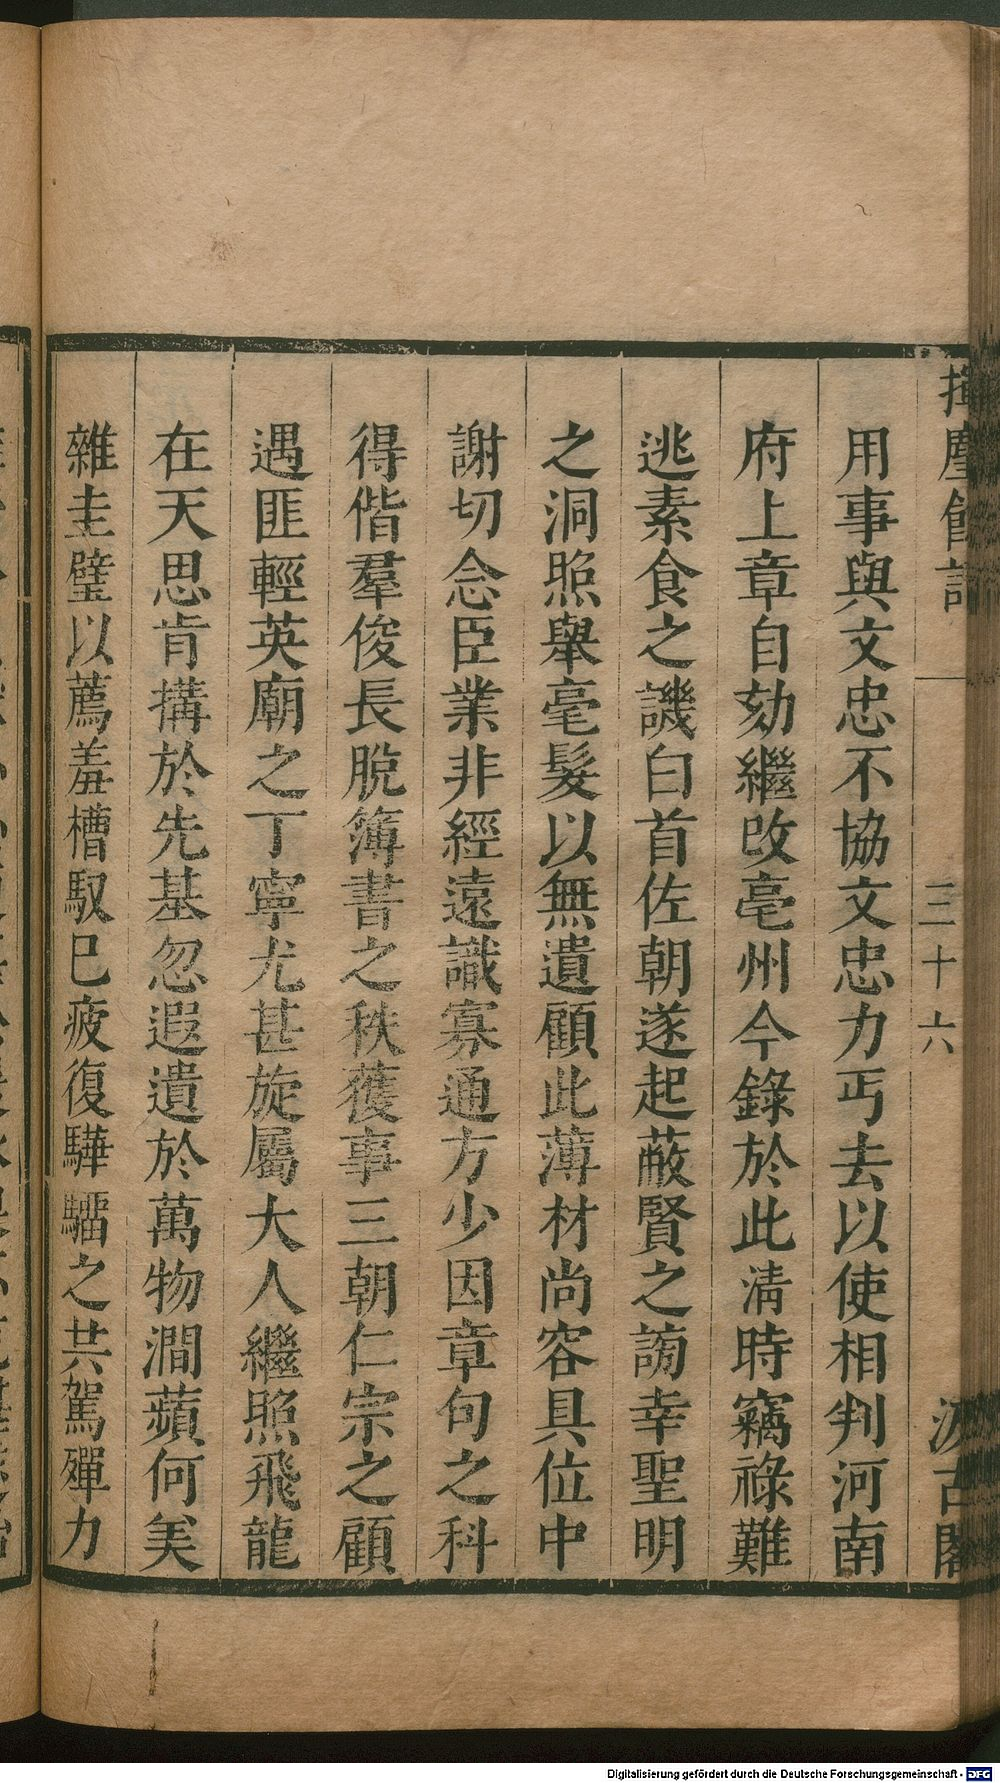 揮麈餘話
三十六
汲古閣
用事與文忠不協文忠力丐去以使相判河南
府上章自劾繼改亳州今錄於此淸時竊祿難
逃素食之譏白首佐朝遂起蔽賢之謗幸聖明
之洞照舉毫髮以無遺顧此薄材尚容具位中
謝切念臣業非經遠識寡通方少因章句之科
得偕羣俊長脫簿書之秩獲事三朝仁宗之顧
遇匪輕英廟之丁寧尤甚旋屬大人繼照飛龍
在天思肯搆於先基忽遐遺於萬物澗蘋何羙
雜圭璧以薦羞槽馭巳疲復驊騮之共駕殫力
Digitalisierung gefördert durch die Deutsche Forschungsgemeinschaft - DFG